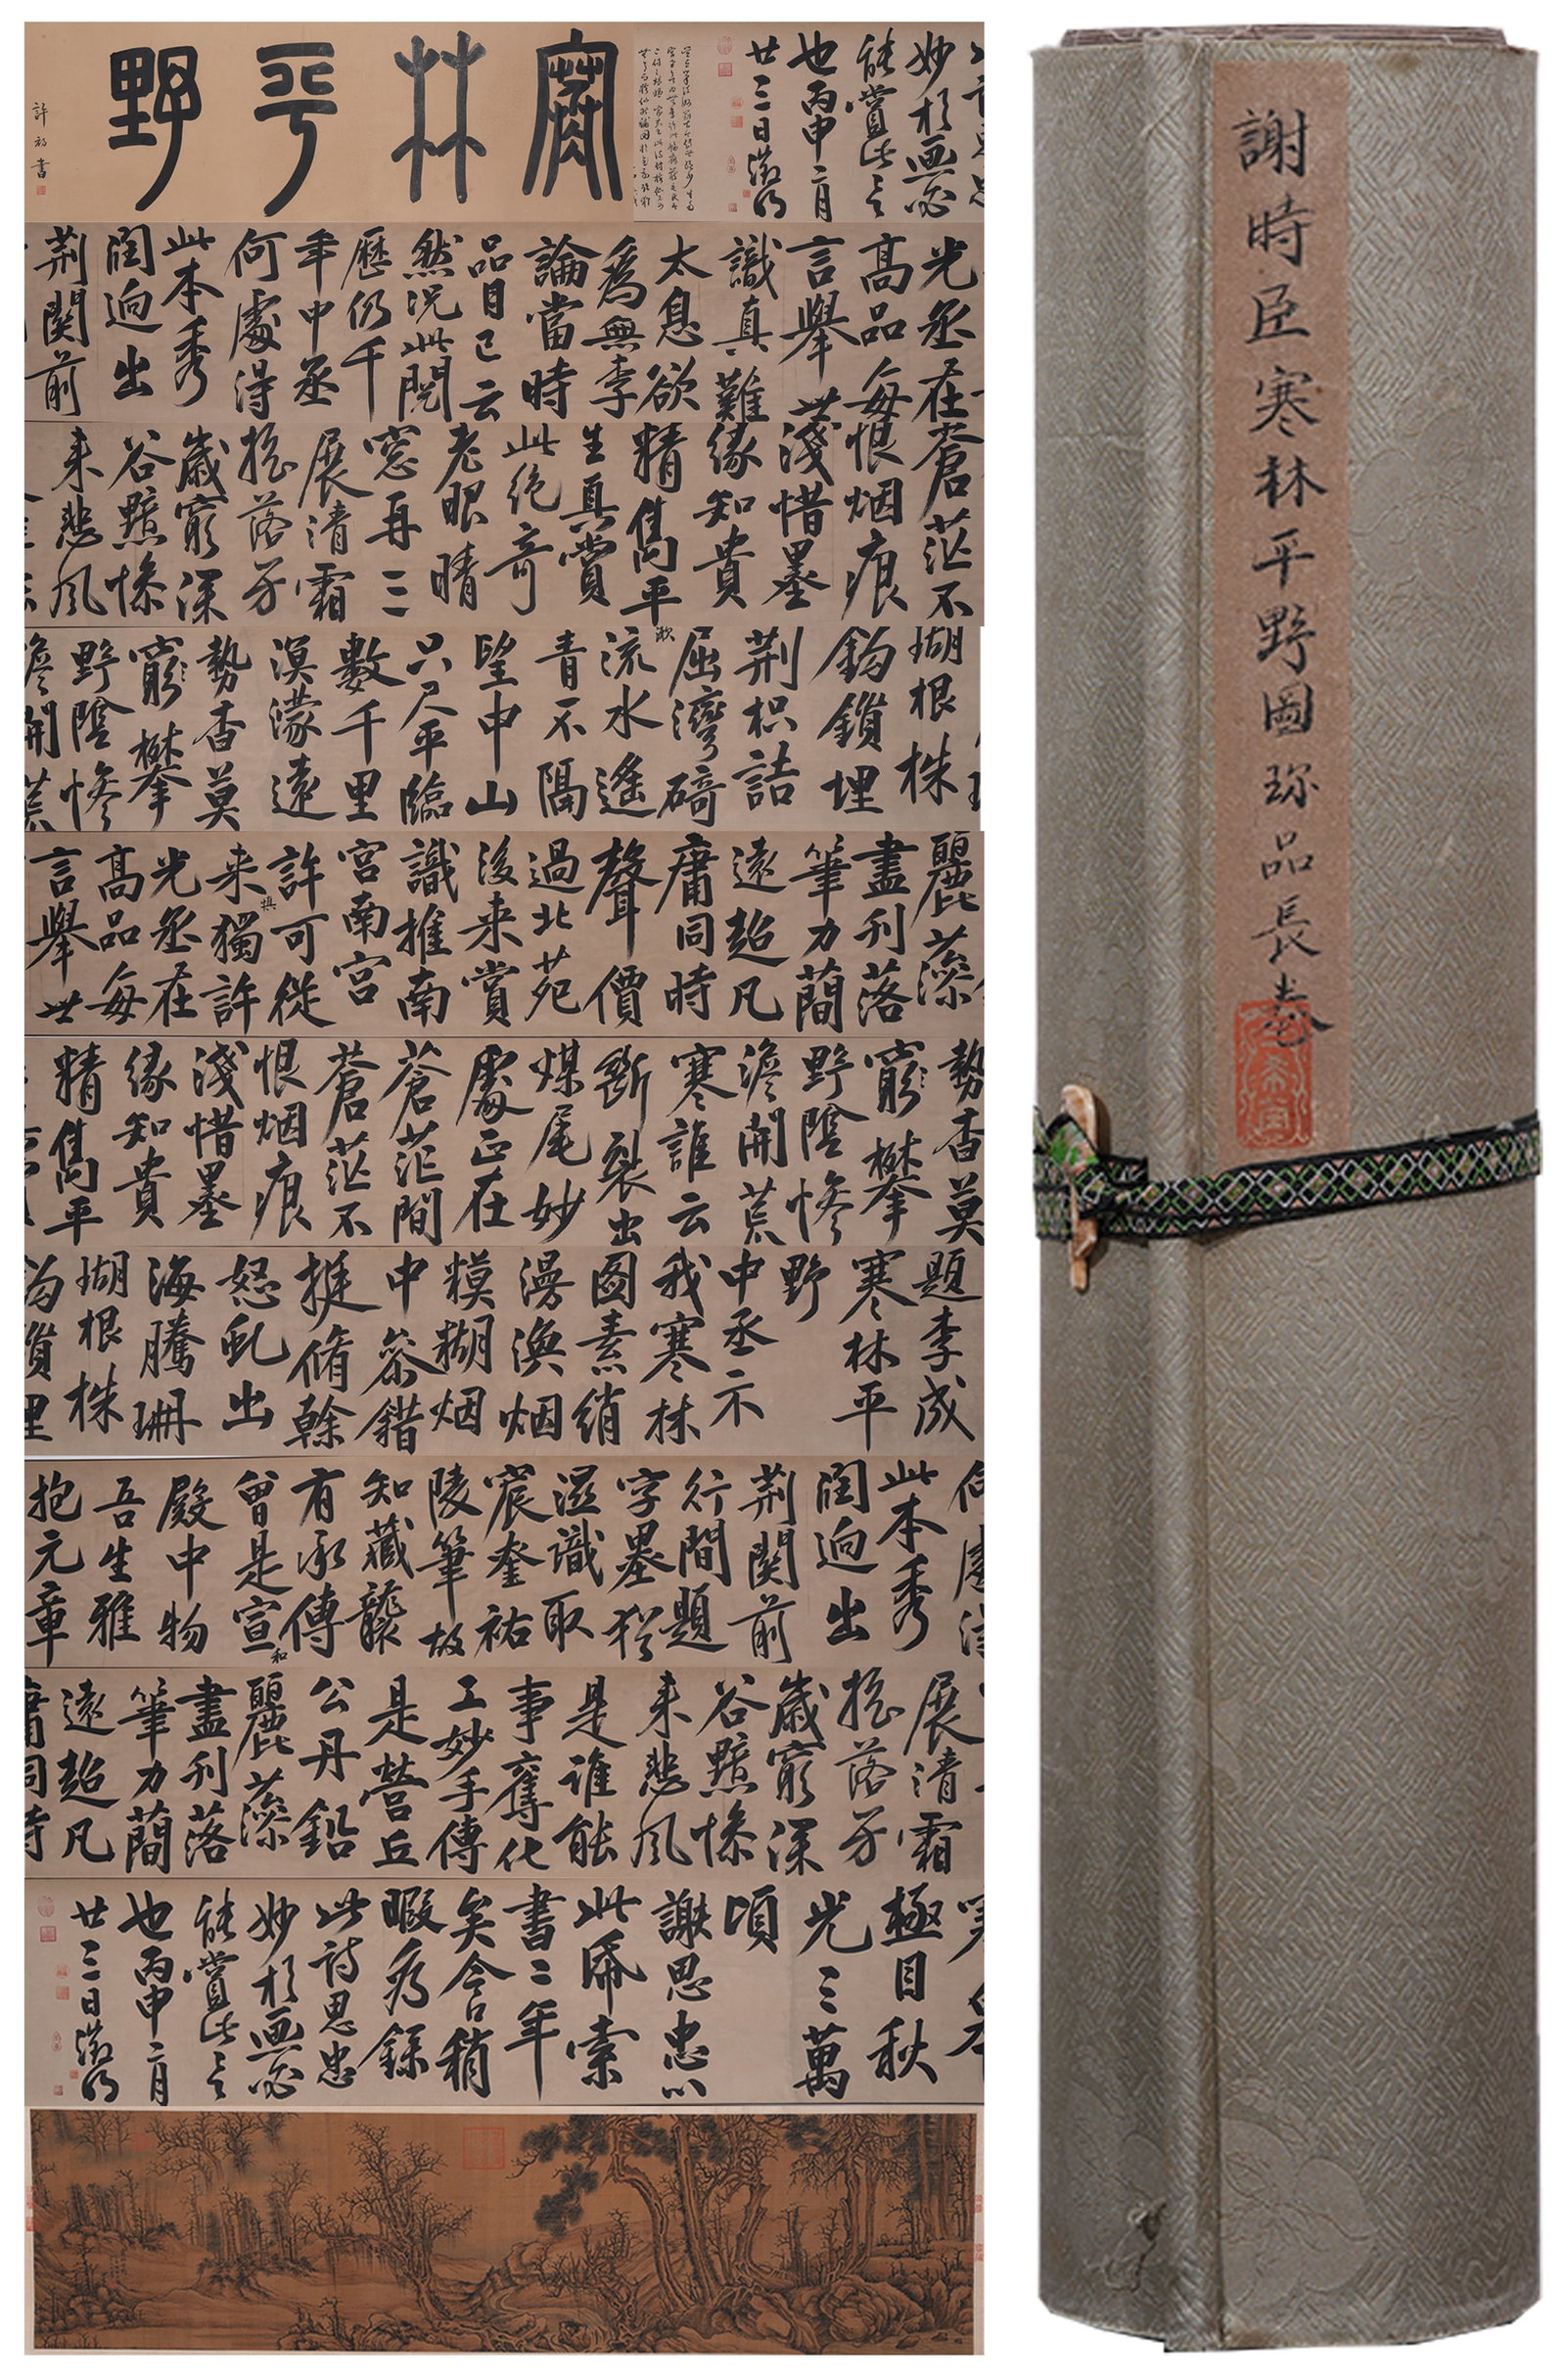 妙於画必
能賞此言
也丙申二月
廿三日徵明
寒林平野
許初書
光丞在
高品每
言舉世
識真難
太息欲
為無李
論當時
品目已云
然況此閱
歷仍千
年中丞
何處得
此本秀
潤逈出
荆関前
蒼茫不
恨烟痕
淺惜墨
緣知貴
精雋平
生真賞
此絶奇
老眼晴
窓再三
展清霜
揺落分
歲窮深
谷黯慘
来悲風
瑚根株
鈎鎖埋
荆枳詰
屈灣碕
流水遙
青不隔
望中山
只尺平臨
數千里
漠濛遠
勢杳莫
窮攀
野陰慘
澹開荒
麗藻
盡刋落
筆力蕳
遠超凡
庸同時
聲價
過北苑
後来賞
識推南
宮南宮
許可從
来獨許
光丞在
高品每
言舉世
勢杳莫
窮攀
野陰慘
澹開荒
寒誰云
斷裂出
煤尾妙
處正在
蒼茫間
蒼茫不
恨烟痕
淺惜墨
緣知貴
精雋平
題李成
寒林平
野
中丞示
我寒林
圖素綃
漫渙烟
糢糊烟
中叅錯
挺脩榦
怒虬出
海騰珊
瑚根株
鈎鎖埋
何處得
此本秀
潤逈出
荆関前
行間題
字墨猶
滋識取
宸奎祐
陵筆故
知藏襲
有承傳
曾是宣和
殿中物
吾生雅
抱元章
展清霜
揺落分
歲窮深
谷黯慘
来悲風
是誰能
事奪化
工妙手傳
是營丘
公丹鉛
麗藻
盡刋落
筆力蕳
遠超凡
庸同時
極目秋
光三萬
頃
謝思忠以
此帋索
書二年
矣今日稍
暇為錄
此詩思忠
妙於画必
能賞此言
也丙申二月
廿三日徵明
謝時臣寒林平野圖珎品長卷